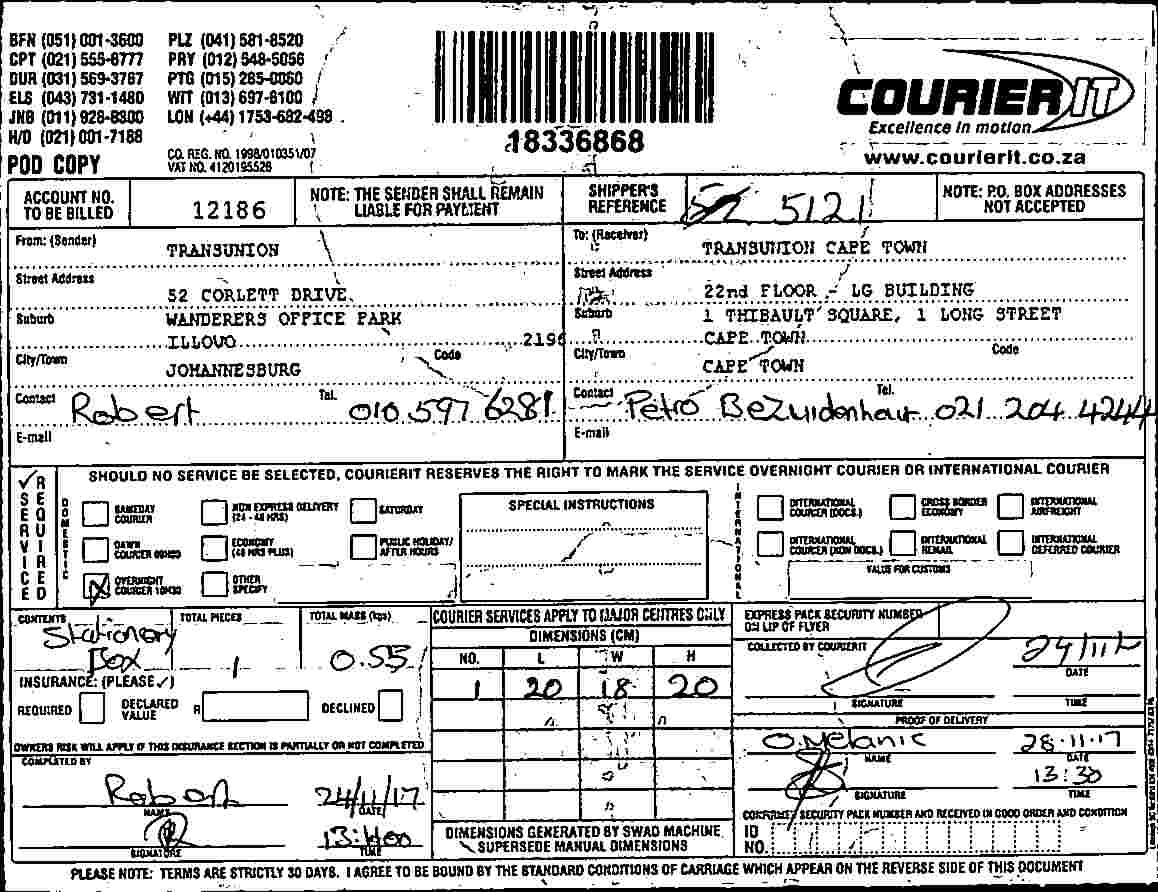 BFN (051) 001-3600 PLZ (041) 581-8520
CPT (021) 555-6777 PRY (012) 548-5056
DUR (031) 569-3767 PTG (015) 265-0060
ELS (043) 731-1480 WIT (013) 697-8100
JNB (011) 928-8300 LON (+44) 1753-682-498
H/O (021) 001-7188
POD COPY
CO. REG. NO. 1998/010351/07
VAT NO. 4120195528
18336868
COURIER IT
Excellence in motion
www.courierit.co.za
ACCOUNT NO. TO BE BILLED
12186
NOTE: THE SENDER SHALL REMAIN LIABLE FOR PAYMENT
SHIPPER'S REFERENCE
5121
NOTE: P.O. BOX ADDRESSES NOT ACCEPTED
From: (Sender)
TRANSUNION
Street Address
52 CORLETT DRIVE
Suburb
WANDERERS OFFICE PARK
ILLOVO 2196
City/Town Code
JOHANNESBURG
Contact Robert Tel. 010 597 6281
E-mail
To: (Receiver)
TRANSUNION CAPE TOWN
Street Address
22nd FLOOR - LG BUILDING
Suburb
1 THIBAULT SQUARE, 1 LONG STREET
CAPE TOWN
City/Town Code
CAPE TOWN
Contact Petro Bezuidenhout Tel. 021 204 4244
E-mail
SERVICE REQUIRED
SHOULD NO SERVICE BE SELECTED, COURIERIT RESERVES THE RIGHT TO MARK THE SERVICE OVERNIGHT COURIER OR INTERNATIONAL COURIER
DOMESTIC
SAMEDAY COURIER
NON EXPRESS DELIVERY (24 - 48 HRS)
SATURDAY
DAWN COURIER 09H00
ECONOMY (48 HRS PLUS)
PUBLIC HOLIDAY/ AFTER HOURS
OVERNIGHT COURIER 10H30
OTHER SPECIFY
SPECIAL INSTRUCTIONS
INTERNATIONAL
INTERNATIONAL COURIER (DOCS.)
CROSS BORDER ECONOMY
INTERNATIONAL AIRFREIGHT
INTERNATIONAL COURIER (NON DOCS.)
INTERNATIONAL REMAIL
INTERNATIONAL DEFERRED COURIER
VALUE FOR CUSTOMS
CONTENTS
Stationery
Box
TOTAL PIECES
1
TOTAL MASS (kgs)
0.55
INSURANCE: (PLEASE ✓)
REQUIRED
DECLARED VALUE R
DECLINED
OWNERS RISK WILL APPLY IF THIS INSURANCE SECTION IS PARTIALLY OR NOT COMPLETED
COMPLETED BY
Robert 24/11/17
NAME DATE
SIGNATURE TIME
COURIER SERVICES APPLY TO MAJOR CENTRES ONLY
DIMENSIONS (CM)
NO. L W H
1 20 18 20
DIMENSIONS GENERATED BY SWAD MACHINE
SUPERSEDE MANUAL DIMENSIONS
EXPRESS PACK SECURITY NUMBER
ON LIP OF FLYER
COLLECTED BY COURIERIT
DATE
SIGNATURE TIME
PROOF OF DELIVERY
O.Melanie 28-11-17
NAME DATE
13:30
SIGNATURE TIME
SECURITY PACK NUMBER AND RECEIVED IN GOOD ORDER AND CONDITION
ID NO.
PLEASE NOTE: TERMS ARE STRICTLY 30 DAYS. I AGREE TO BE BOUND BY THE STANDARD CONDITIONS OF CARRIAGE WHICH APPEAR ON THE REVERSE SIDE OF THIS DOCUMENT